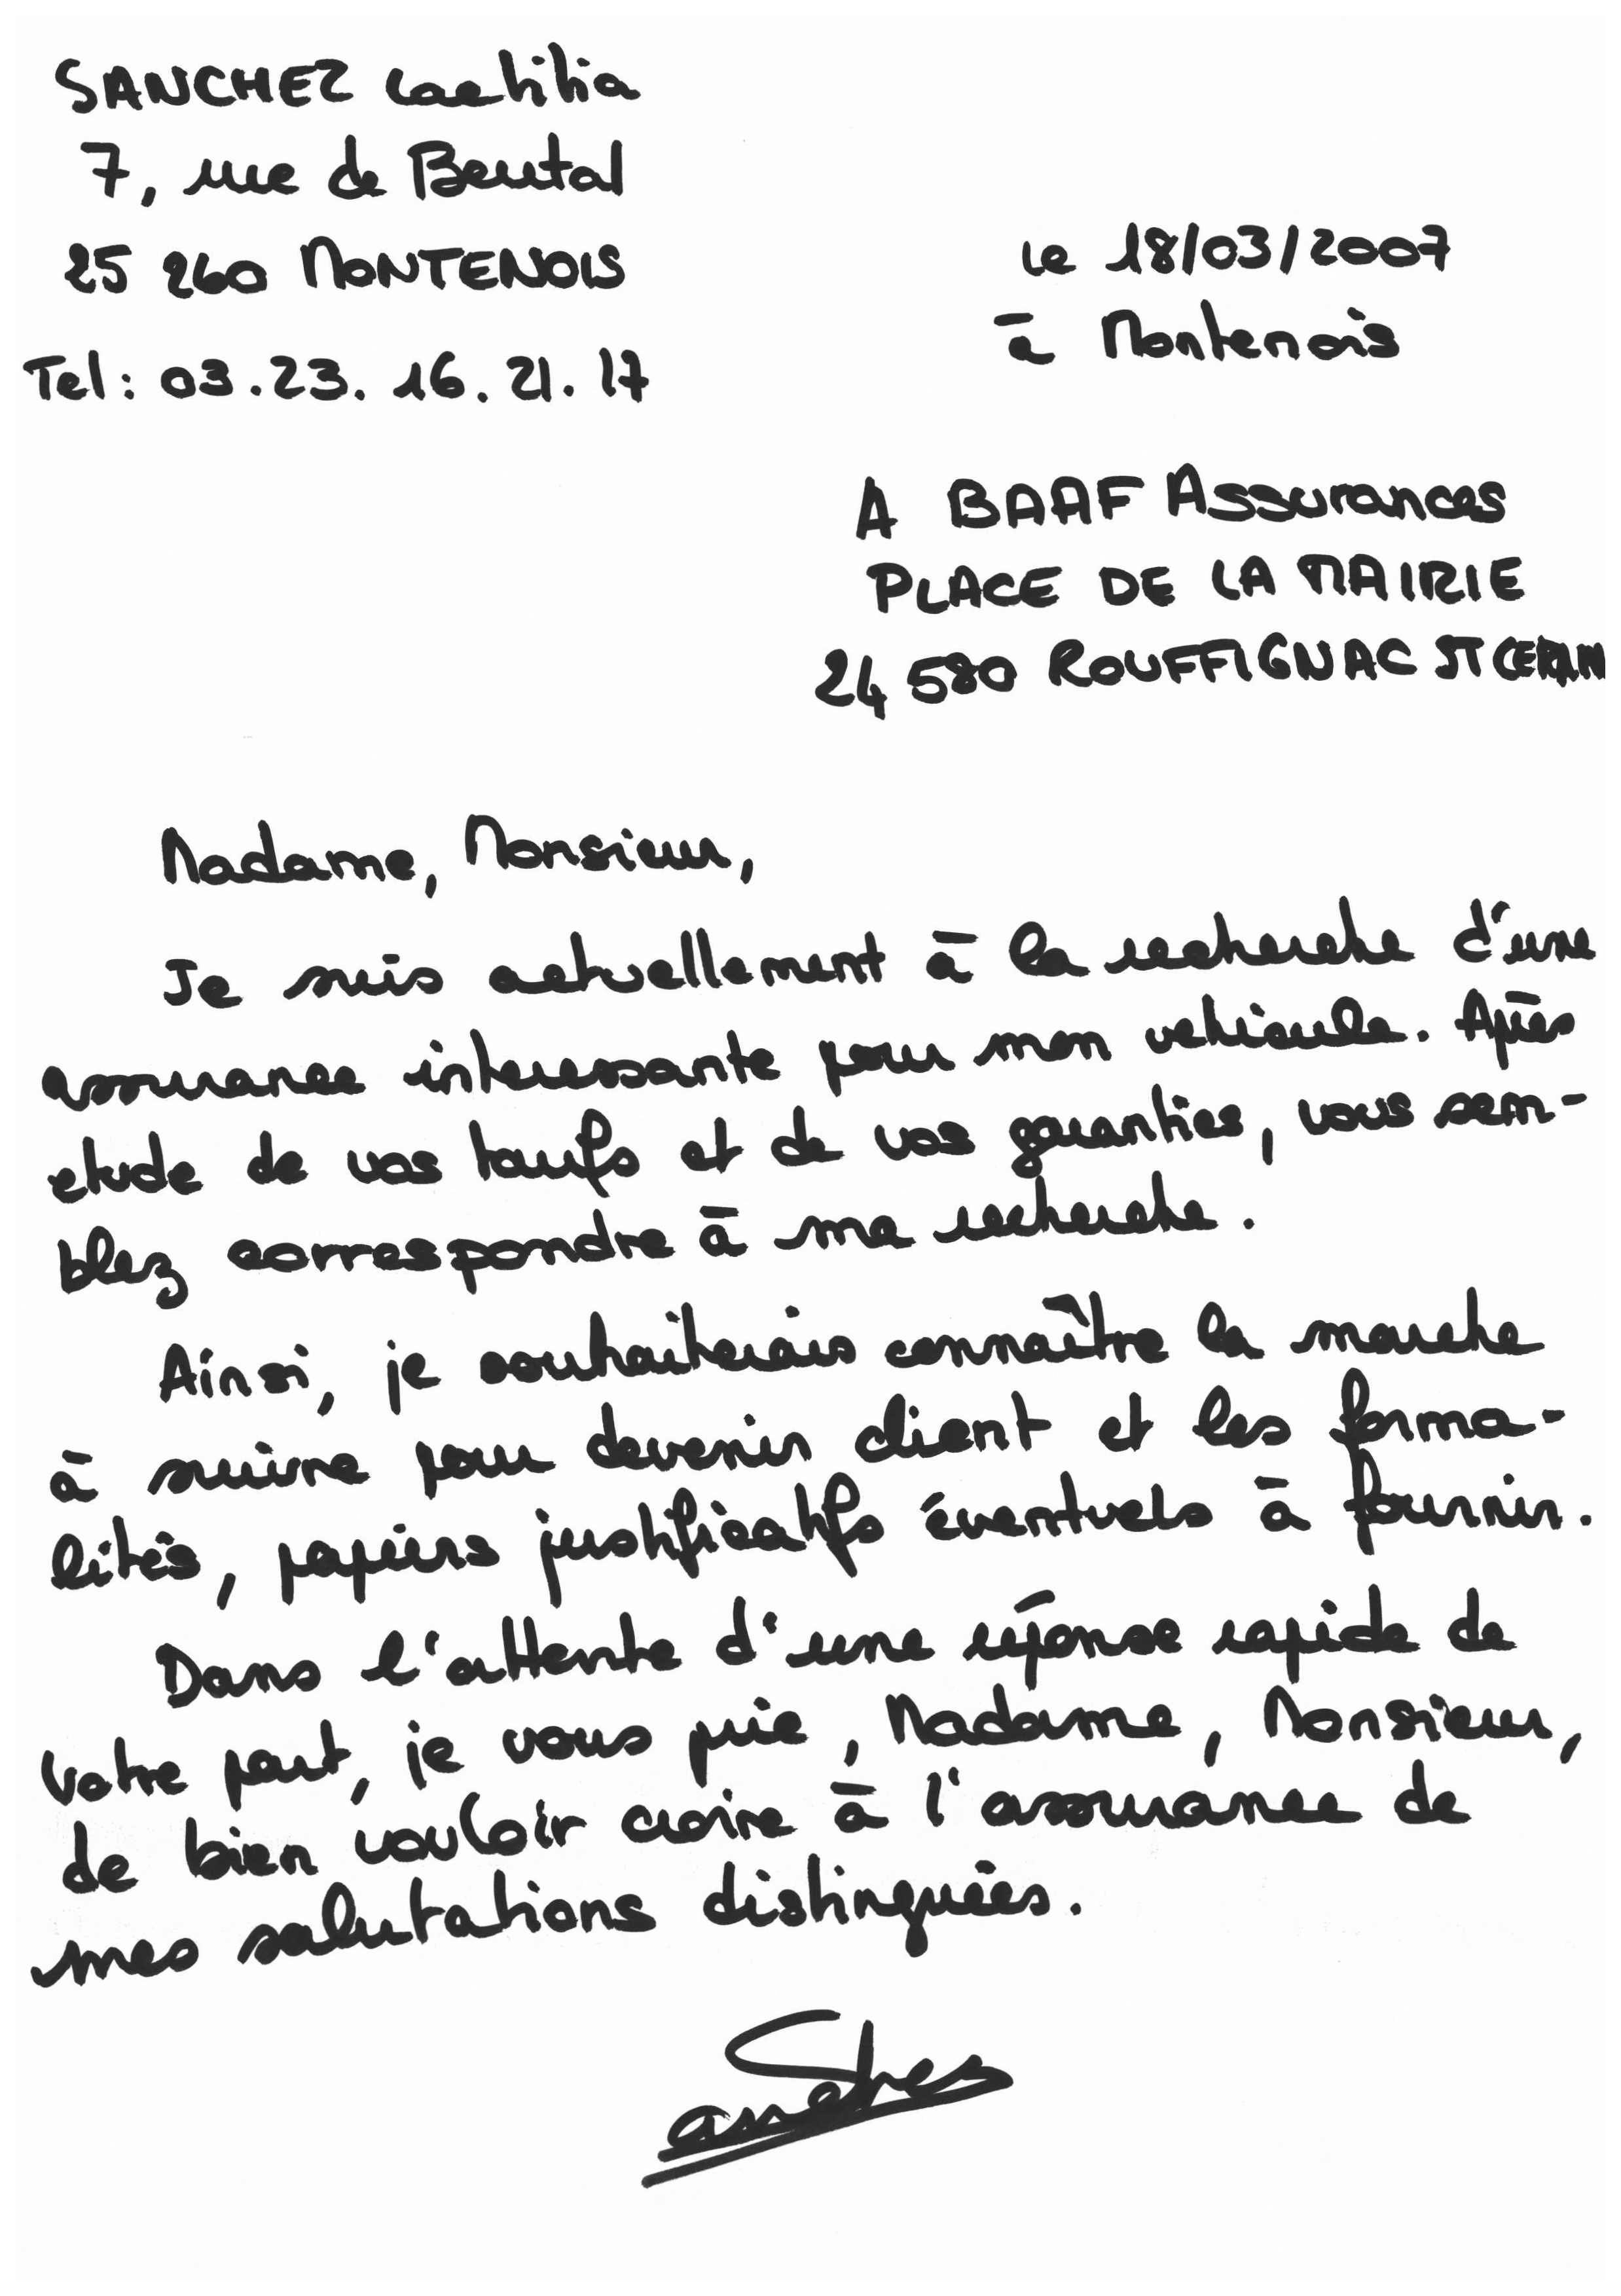 SANCHEZ Laetitia
7, rue de Beutal
25 260 MONTENOIS
Tel : 03.23.16.21.17
Le 18/03/2007
à Montenois
A BAAF Assurances
PLACE DE LA MAIRIE
24 580 ROUFFIGNAC ST
Madame, Monsieur,
Je suis actuellement à la recherche d'une
assurance interessante pour mon vehicule. Après
etude de vos tarifs et de vos garanties, vous sem-
blez correspondre à ma recherche.
Ainsi, je souhaiterais connaître la marche
à suivre pour devenir client et les forma-
lités, papiers justificatifs éventuels à fournir.
Dans l'attente d'une réponse rapide de
votre part, je vous prie, Madame, Monsieur,
de bien vouloir croire à l'assurance de
mes salutations distinguées.
Sanchez